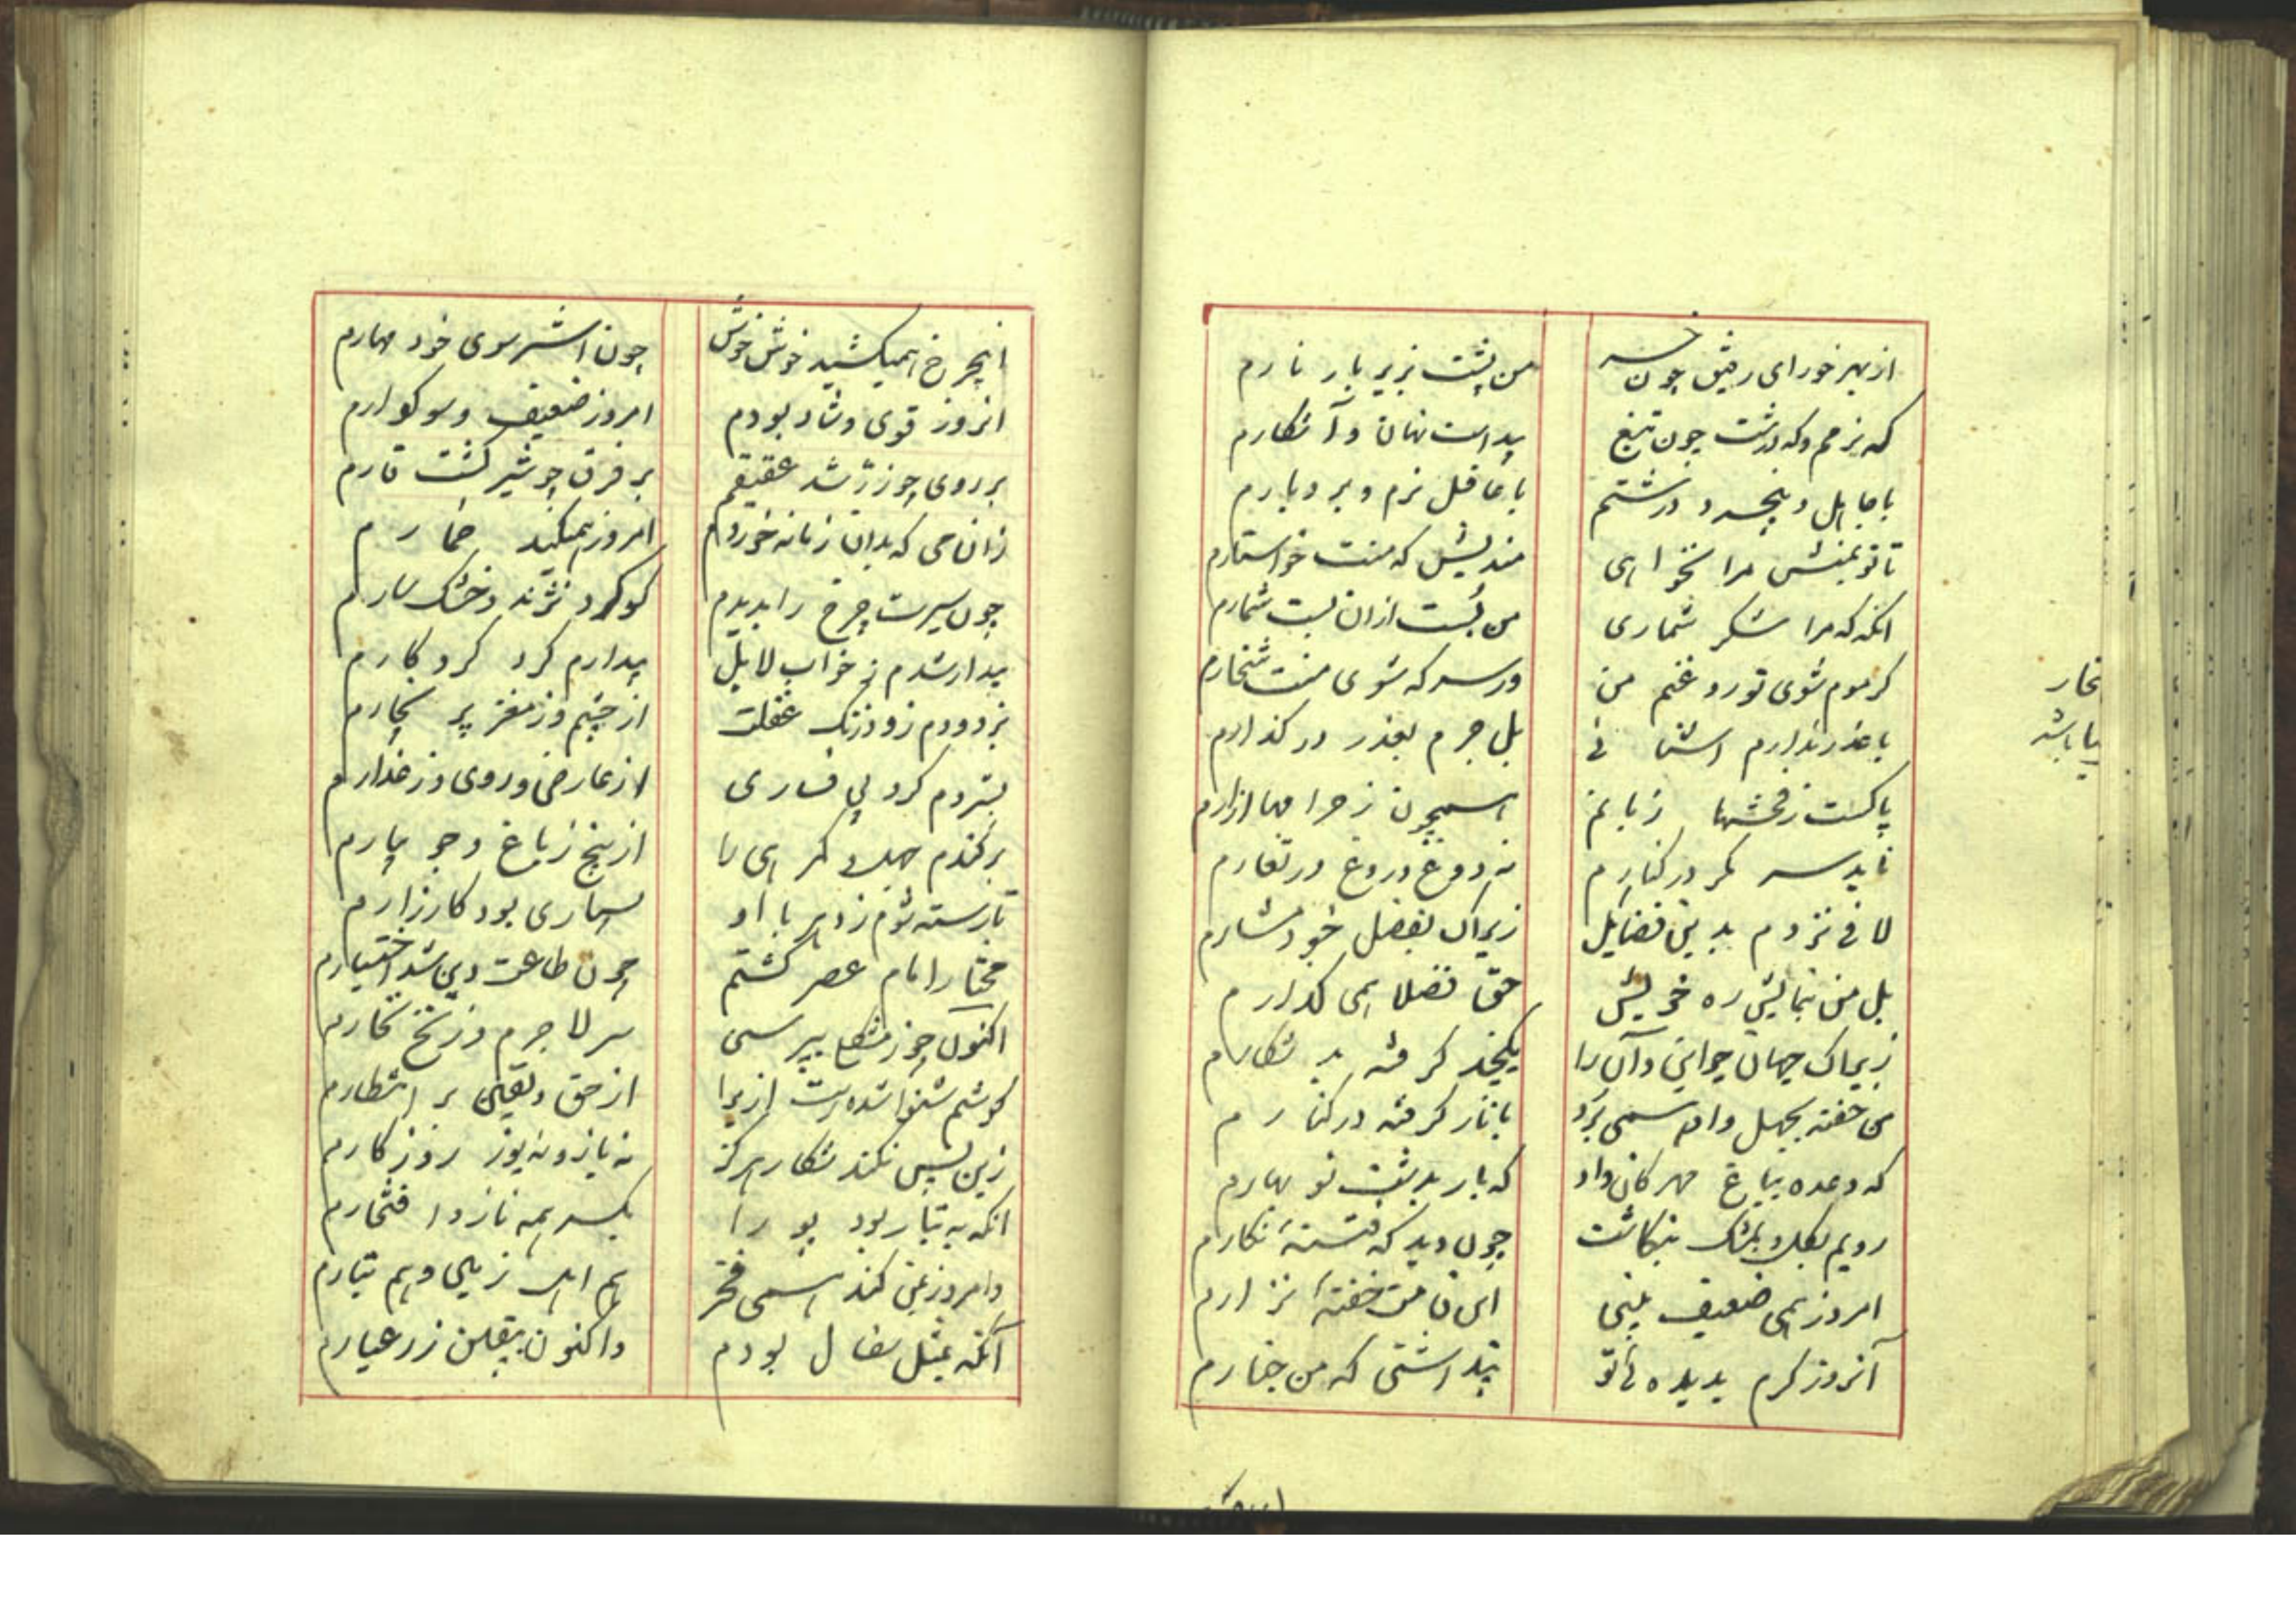 از بهر خور ای رفیق چون خر
من پشت بزیر بار نارم
که نرمم و که درشت چون تیغ
پیداست نهان و آشکارم
با جاهل و بیخرد درشتم
با عاقل نرم و بردبارم
تا تو بمنش مرا نخواهی
مندیش که منت خواستارم
انگه که مرا شکر شماری
من بست ازان بست شمارم
کر موم شوی تو روغنم من
ور سرکه شوی منت شخارم
با غدر ندارم آشنائی
بل جرم بعذر در کذارم
پاکست زفحشها زبانم
همچون ز حرامها ازارم
ناید سر مکر در کنارم
نه دوغ دروغ در تغارم
لافی نزدم بدین فضایل
زیراک بفضل خود مشارم
بل من بنمایش ره خویش
حق فضلا همی کذارم
زیراک جهان چو این و آن را
یکچند کرفته بد شکارم
من خفته بجهل و او همی برد
با ناز کرفته در کنارم
که وعده بباغ مهرکان داد
که بار بدشت نو بهارم
رویم بکل و بمشک بنکاشت
چون دید که فتنهٔ نکارم
امروز همی ضعیف بینی
این قامت خفتهٔ نزارم
آنروز کرم بدیده ئی تو
پنداشتی که من چنارم
نخار
یا باشد
این چرخ همیکشید خوش خوش
چون اشتر سوی خود مهارم
انروز قوی و شاد بودم
امروز ضعیف و سوکوارم
بر روی چو زر شد عقیقم
بر فرق چو شیر کشت قارم
زان می که بدان زمانه خوردم
امروز همیکند خمارم
چون سیرت چرخ را بدیدم
کو کرد نژند و خشکسارم
بیدار شدم ز خواب لابل
بیدارم کرد کردکارم
بزدودم زود زنک غفلت
از چشم و ز مغز پر بخارم
بستردم کرد بی فساری
از عارض و روی و ز عذارم
بر کندم جهل و کمرهی را
از بیخ ز باغ و جویبارم
تا رسته شوم ز دهر با او
بسیاری بود کارزارم
مختار امام عصر کشتم
چون طاعت و دین شد اختیارم
اکنون چو ز مشکلی بپرسی
سر لاجرم و زنخ نخارم
کوشم شنوا شده است ازیرا
از حق و یقین بر انتظارم
زین پس نکند شکار هرکز
نه باز و نه یوز روزکارم
انکه به تبار بود بو را
یکسر همه ناز و افتخارم
و امروز بمن کند همی فخر
هم اهل زمین و هم تبارم
آنکه بمثل سفال بودم
و اکنون بیقین زر عیارم